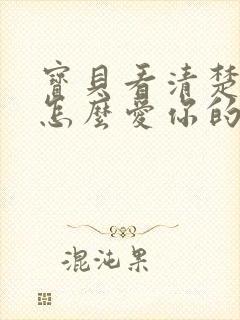 寶貝看清楚
怎麼愛你的
混沌果